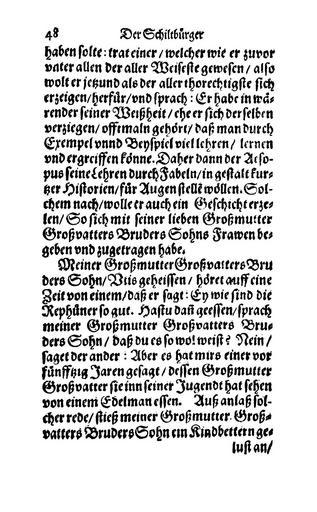 48 Der Schiltbürger
haben solte: trat einer/ welcher wie er zuvor
vater allen der aller Weiseste gewesen/ also
wolt er jetzund als der aller thorechtigste sich
erzeigen/ herfür/ vnd sprach: Er habe in wä-
render seiner Weißheit/ ehe er sich derselben
verziegen/ offtemaln gehört/ daß man durch
Exempel vnnd Beyspiel viel lehren/ lernen
vnd ergreiffen könne. Daher dann der Aeso-
pus seine Lehren durch Fabeln/ in gestalt kur-
tzer Historien/ für Augen stelle wöllen. Sol-
chem nach/ wolle er auch ein Geschicht erze-
len/ So sich mit seiner lieben Großmutter
Großvatters Bruders Sohns Frawen be-
geben vnd zugetragen habe.
Meiner Großmutter Großvatters Bru
ders Sohn/ Vtis geheissen/ höret auff eine
Zeit von einem/ daß er sagt: Ey wie sind die
Rephüner so gut. Hastu dañ geessen/ sprach
meiner Großmutter Großvatters Bru-
ders Sohn/ daß du es so wol weist? Nein/
saget der ander: Aber es hat mirs einer vor
fünfftzig Jaren gesagt/ dessen Großmutter
Großvatter sie inn seiner Jugendt hat sehen
von einem Edelman essen. Auß anlaß sol-
cher rede/ stieß meiner Großmutter Groß-
vatters Bruders Sohn ein Kindbettern ge-
lust an/